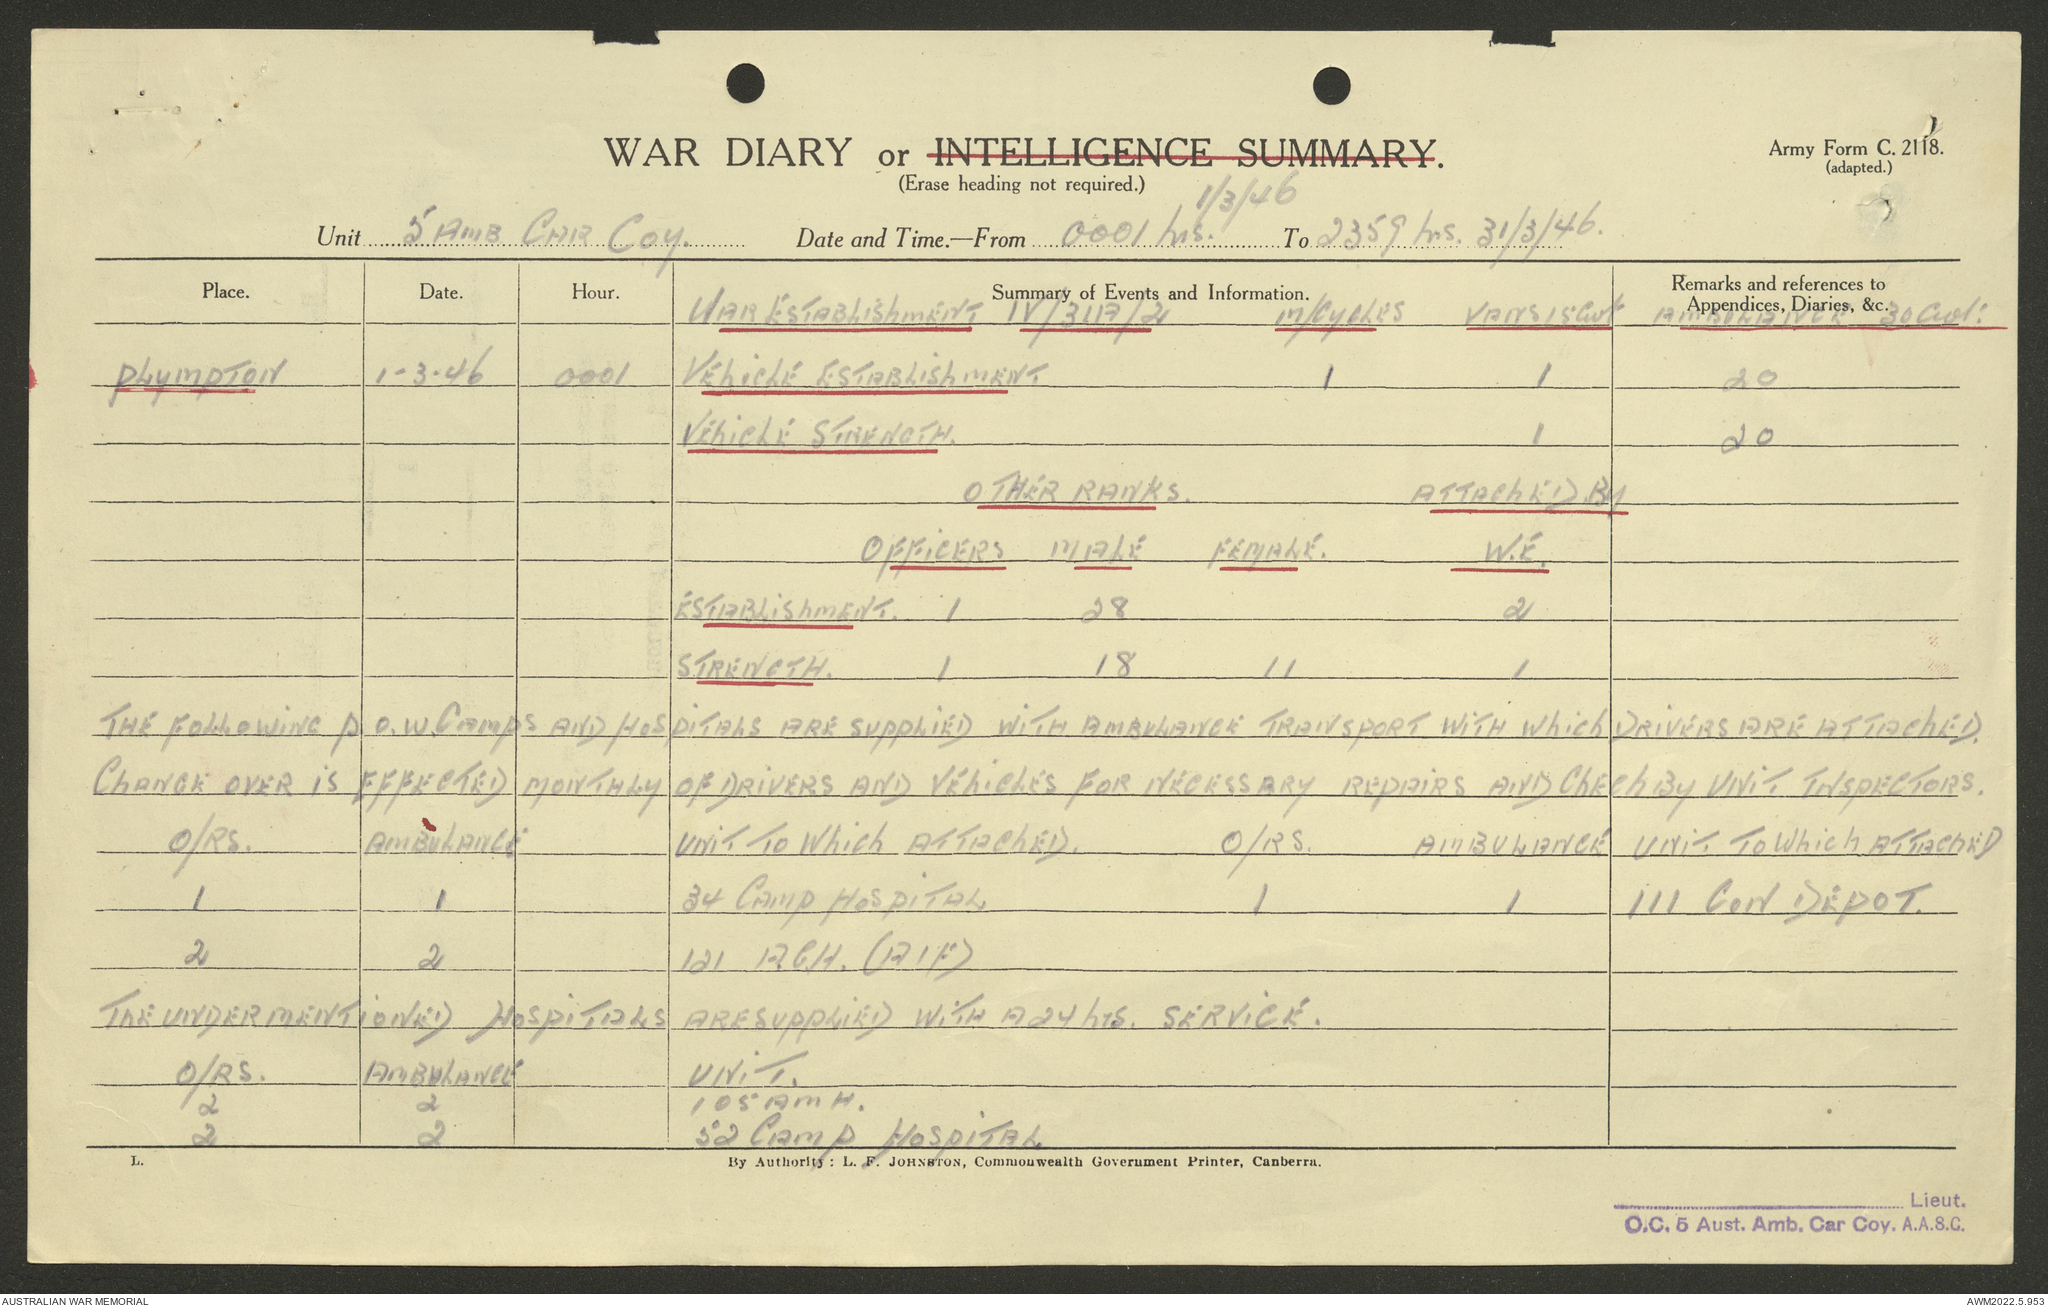 WAR DIARY or INTELLIGENCE SUMMARY.
(Erase heading not required.)
Army Form C. 2118.
(adapted.)
1/3/46
Unit 5 AMB CAR COY. Date and Time.—From 0001 hrs. To 2359 hrs. 31/3/46.
Place. Date. Hour. Summary of Events and Information. Remarks and references to Appendices, Diaries, &c.
WAR ESTABLISHMENT IV/311A/2 M/CYCLES VANS 15 CWT AMBULANCE 30 CWT.
PLYMPTON 1-3-46 0001 VEHICLE ESTABLISHMENT 1 1 20
VEHICLE STRENGTH. 1 20
OTHER RANKS. ATTACHED BY
OFFICERS MALE FEMALE. W.E.
ESTABLISHMENT. 1 28 2
STRENGTH. 1 18 11 1
THE FOLLOWING P.O.W. CAMPS AND HOSPITALS ARE SUPPLIED WITH AMBULANCE TRANSPORT WITH WHICH DRIVERS ARE ATTACHED.
CHANGE OVER IS EFFECTED MONTHLY OF DRIVERS AND VEHICLES FOR NECESSARY REPAIRS AND CHECH BY UNIT INSPECTORS.
O/RS. AMBULANCE UNIT TO WHICH ATTACHED. O/RS. AMBULANCE UNIT TO WHICH ATTACHED
1 1 34 CAMP HOSPITAL 1 1 111 CON DEPOT.
2 2 121 A.G.H. (AIF)
THE UNDERMENTIONED HOSPITALS ARE SUPPLIED WITH A 24 hrs. SERVICE.
O/RS. AMBULANCE UNIT.
2 2 105 AMH.
2 2 52 CAMP HOSPITAL
L. By Authority: L. F. JOHNSTON, Commonwealth Government Printer, Canberra.
Lieut.
O.C. 5 Aust. Amb. Car Coy. A.A.S.C.
AUSTRALIAN WAR MEMORIAL AWM2022.5.953